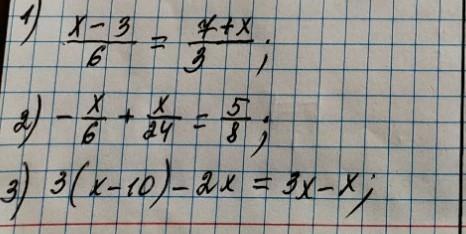 1) (x-3)/6 = (7+x)/3;
2) -x/6 + x/24 = 5/8;
3) 3(x-10)-2x = 3x-x;